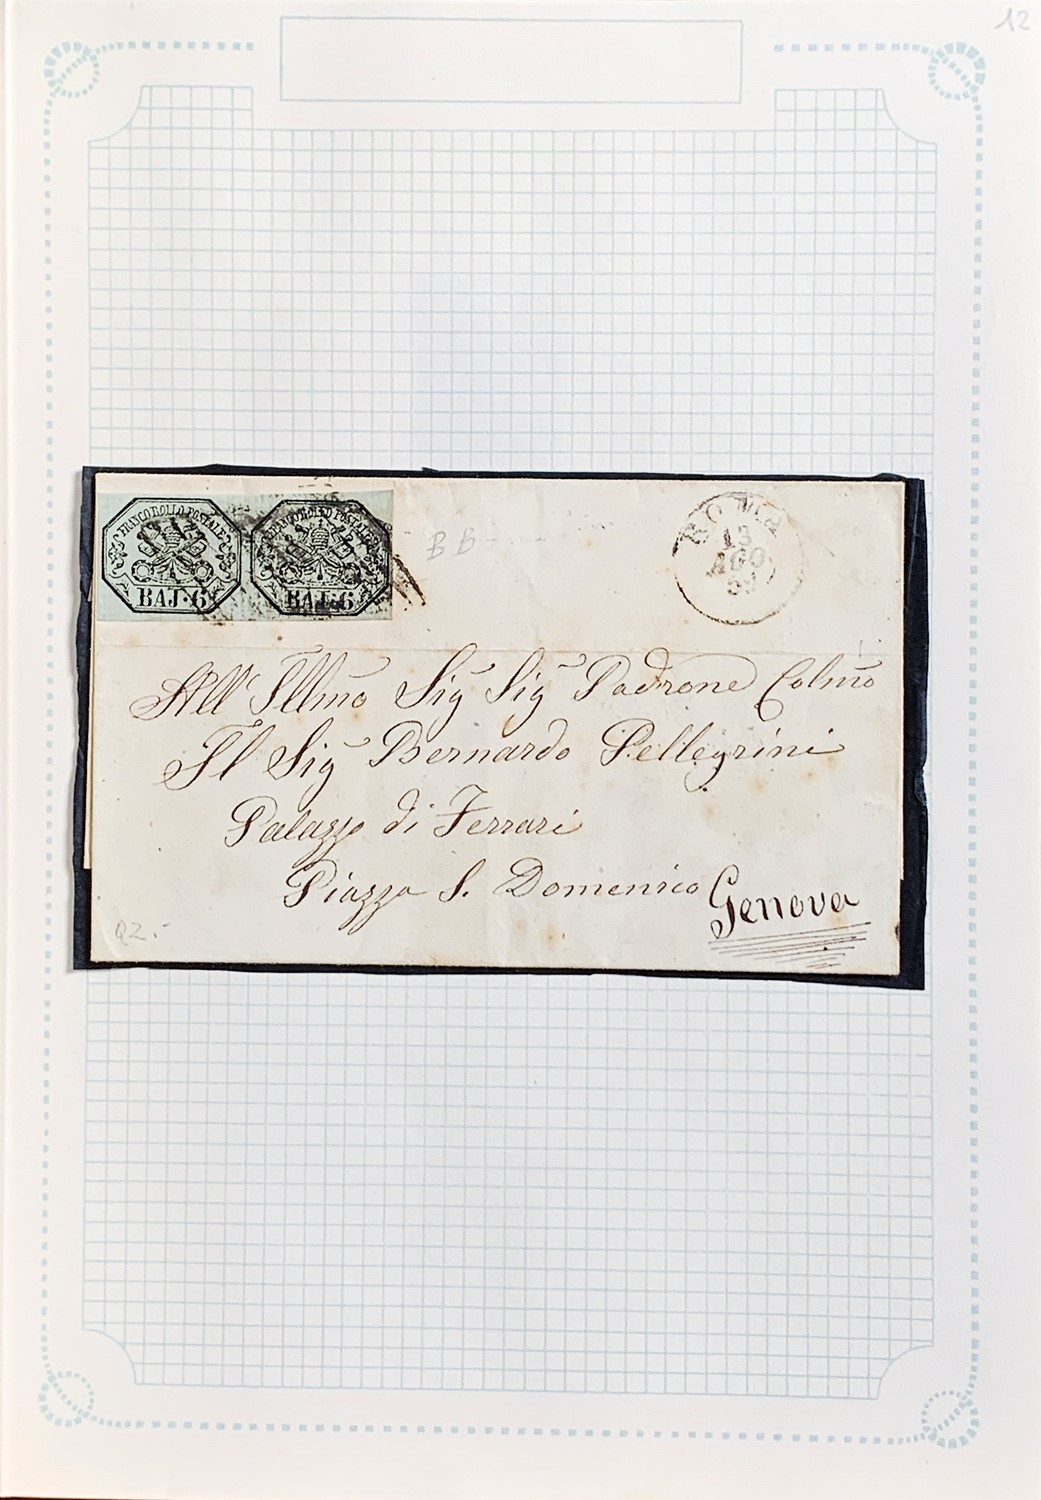 12
FRANCO BOLLO POSTALE
BAJ·6
FRANCO BOLLO POSTALE
BAJ·6
BB
ROMA
13
AGO
All' Illmo Sig Sig Padrone Colmo
Il Sig Bernardo Pellegrini
Palazzo di Ferrari
Piazza S. Domenico Genova